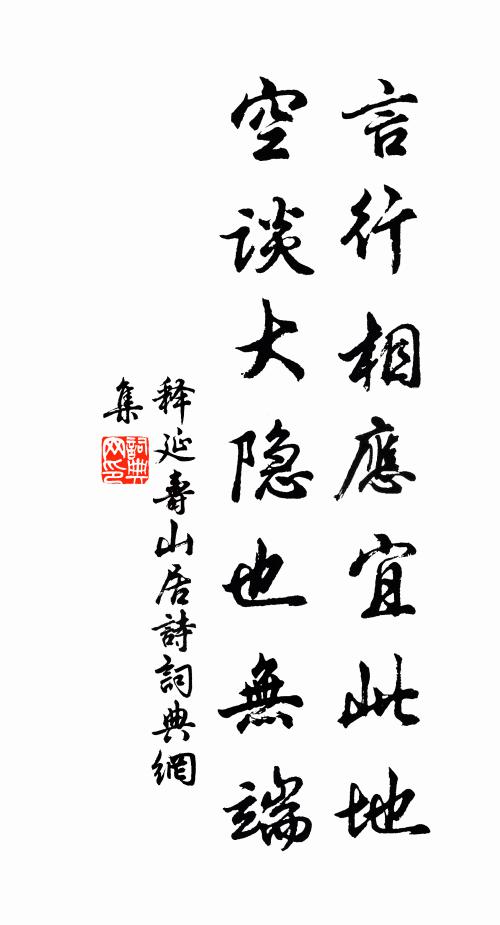 言行相應宜此地
空谈大隐也無端
释延壽山居詩詞典網
集
詞典网印